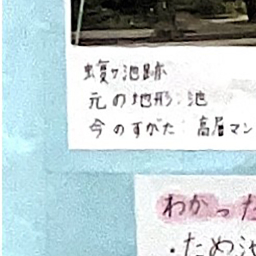 蝮ヶ池跡
元の地形:池
今のすがた:高層マン
わかった
・ため池